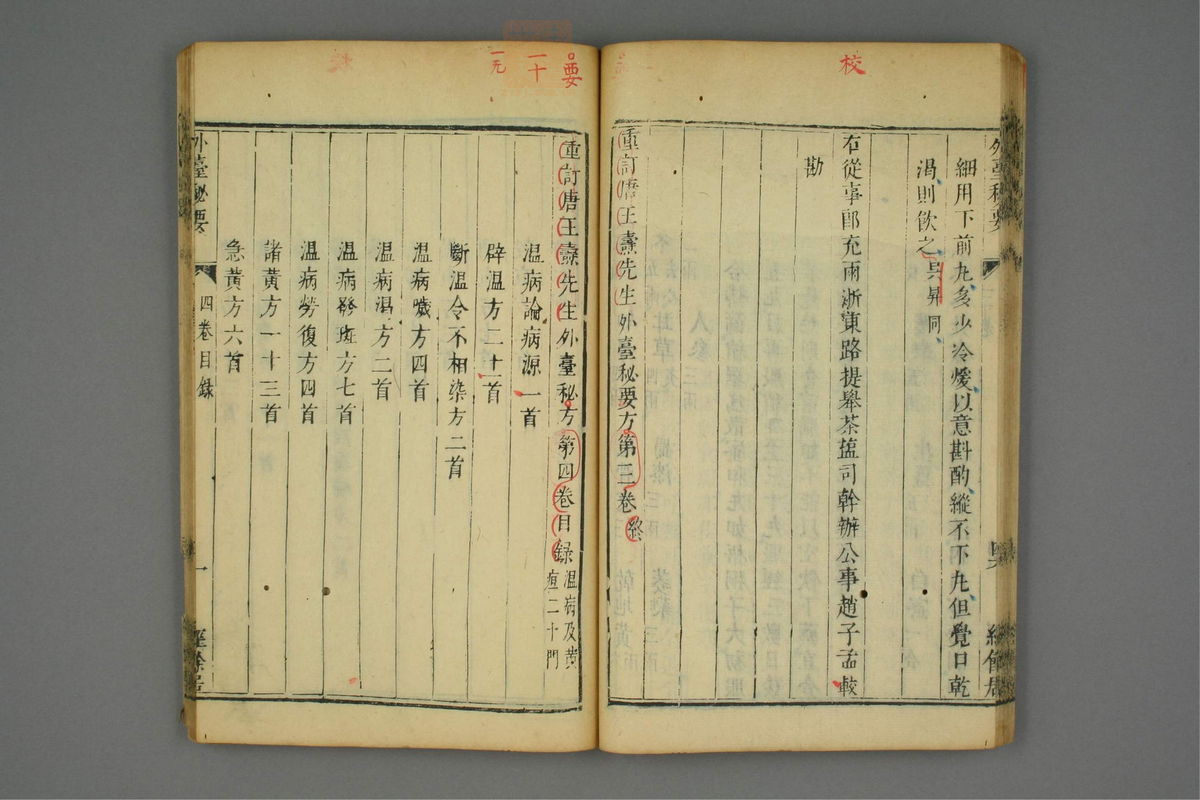 校
細用下前丸多少冷煖以意斟酌縱不下丸但覺口乾
渴則飲之吳昇同
右從事郎充兩浙東路提舉茶鹽司幹辦公事趙子孟較
勘
重訂唐王燾先生外臺秘要方第三卷終
要
一十
一无
重訂唐王燾先生外臺秘方第四卷目錄
溫病及黃
疸二十門
溫病論病源一首
辟溫方二十一首
斷溫令不相染方二首
溫病噦方四首
溫病渴方二首
溫病發斑方七首
溫病勞復方四首
諸黃方一十三首
急黃方六首
外臺秘要
四卷目錄
一
經餘居